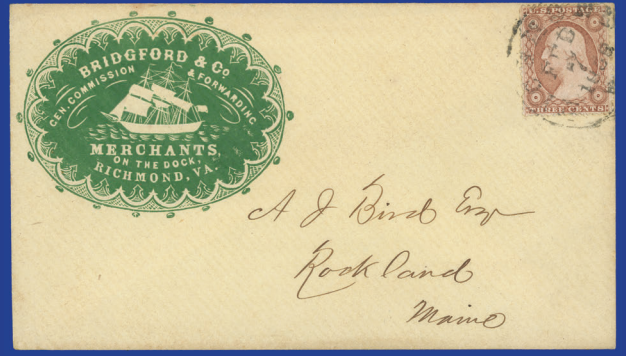 BRIDGFORD & Co
GEN. COMMISSION & FORWARDING
MERCHANTS,
ON THE DOCK,
RICHMOND, VA.
U.S. POSTAGE
THREE CENTS
A J Bird Esq
Rockland
Maine